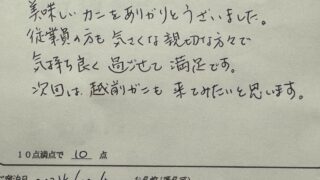 美味しいカニをありがとうございました。
従業員の方も気さくな親切な方々で
気持ち良く過ごせて満足です。
次回は、越前がにも来てみたいと思います。
10点満点で 10 点